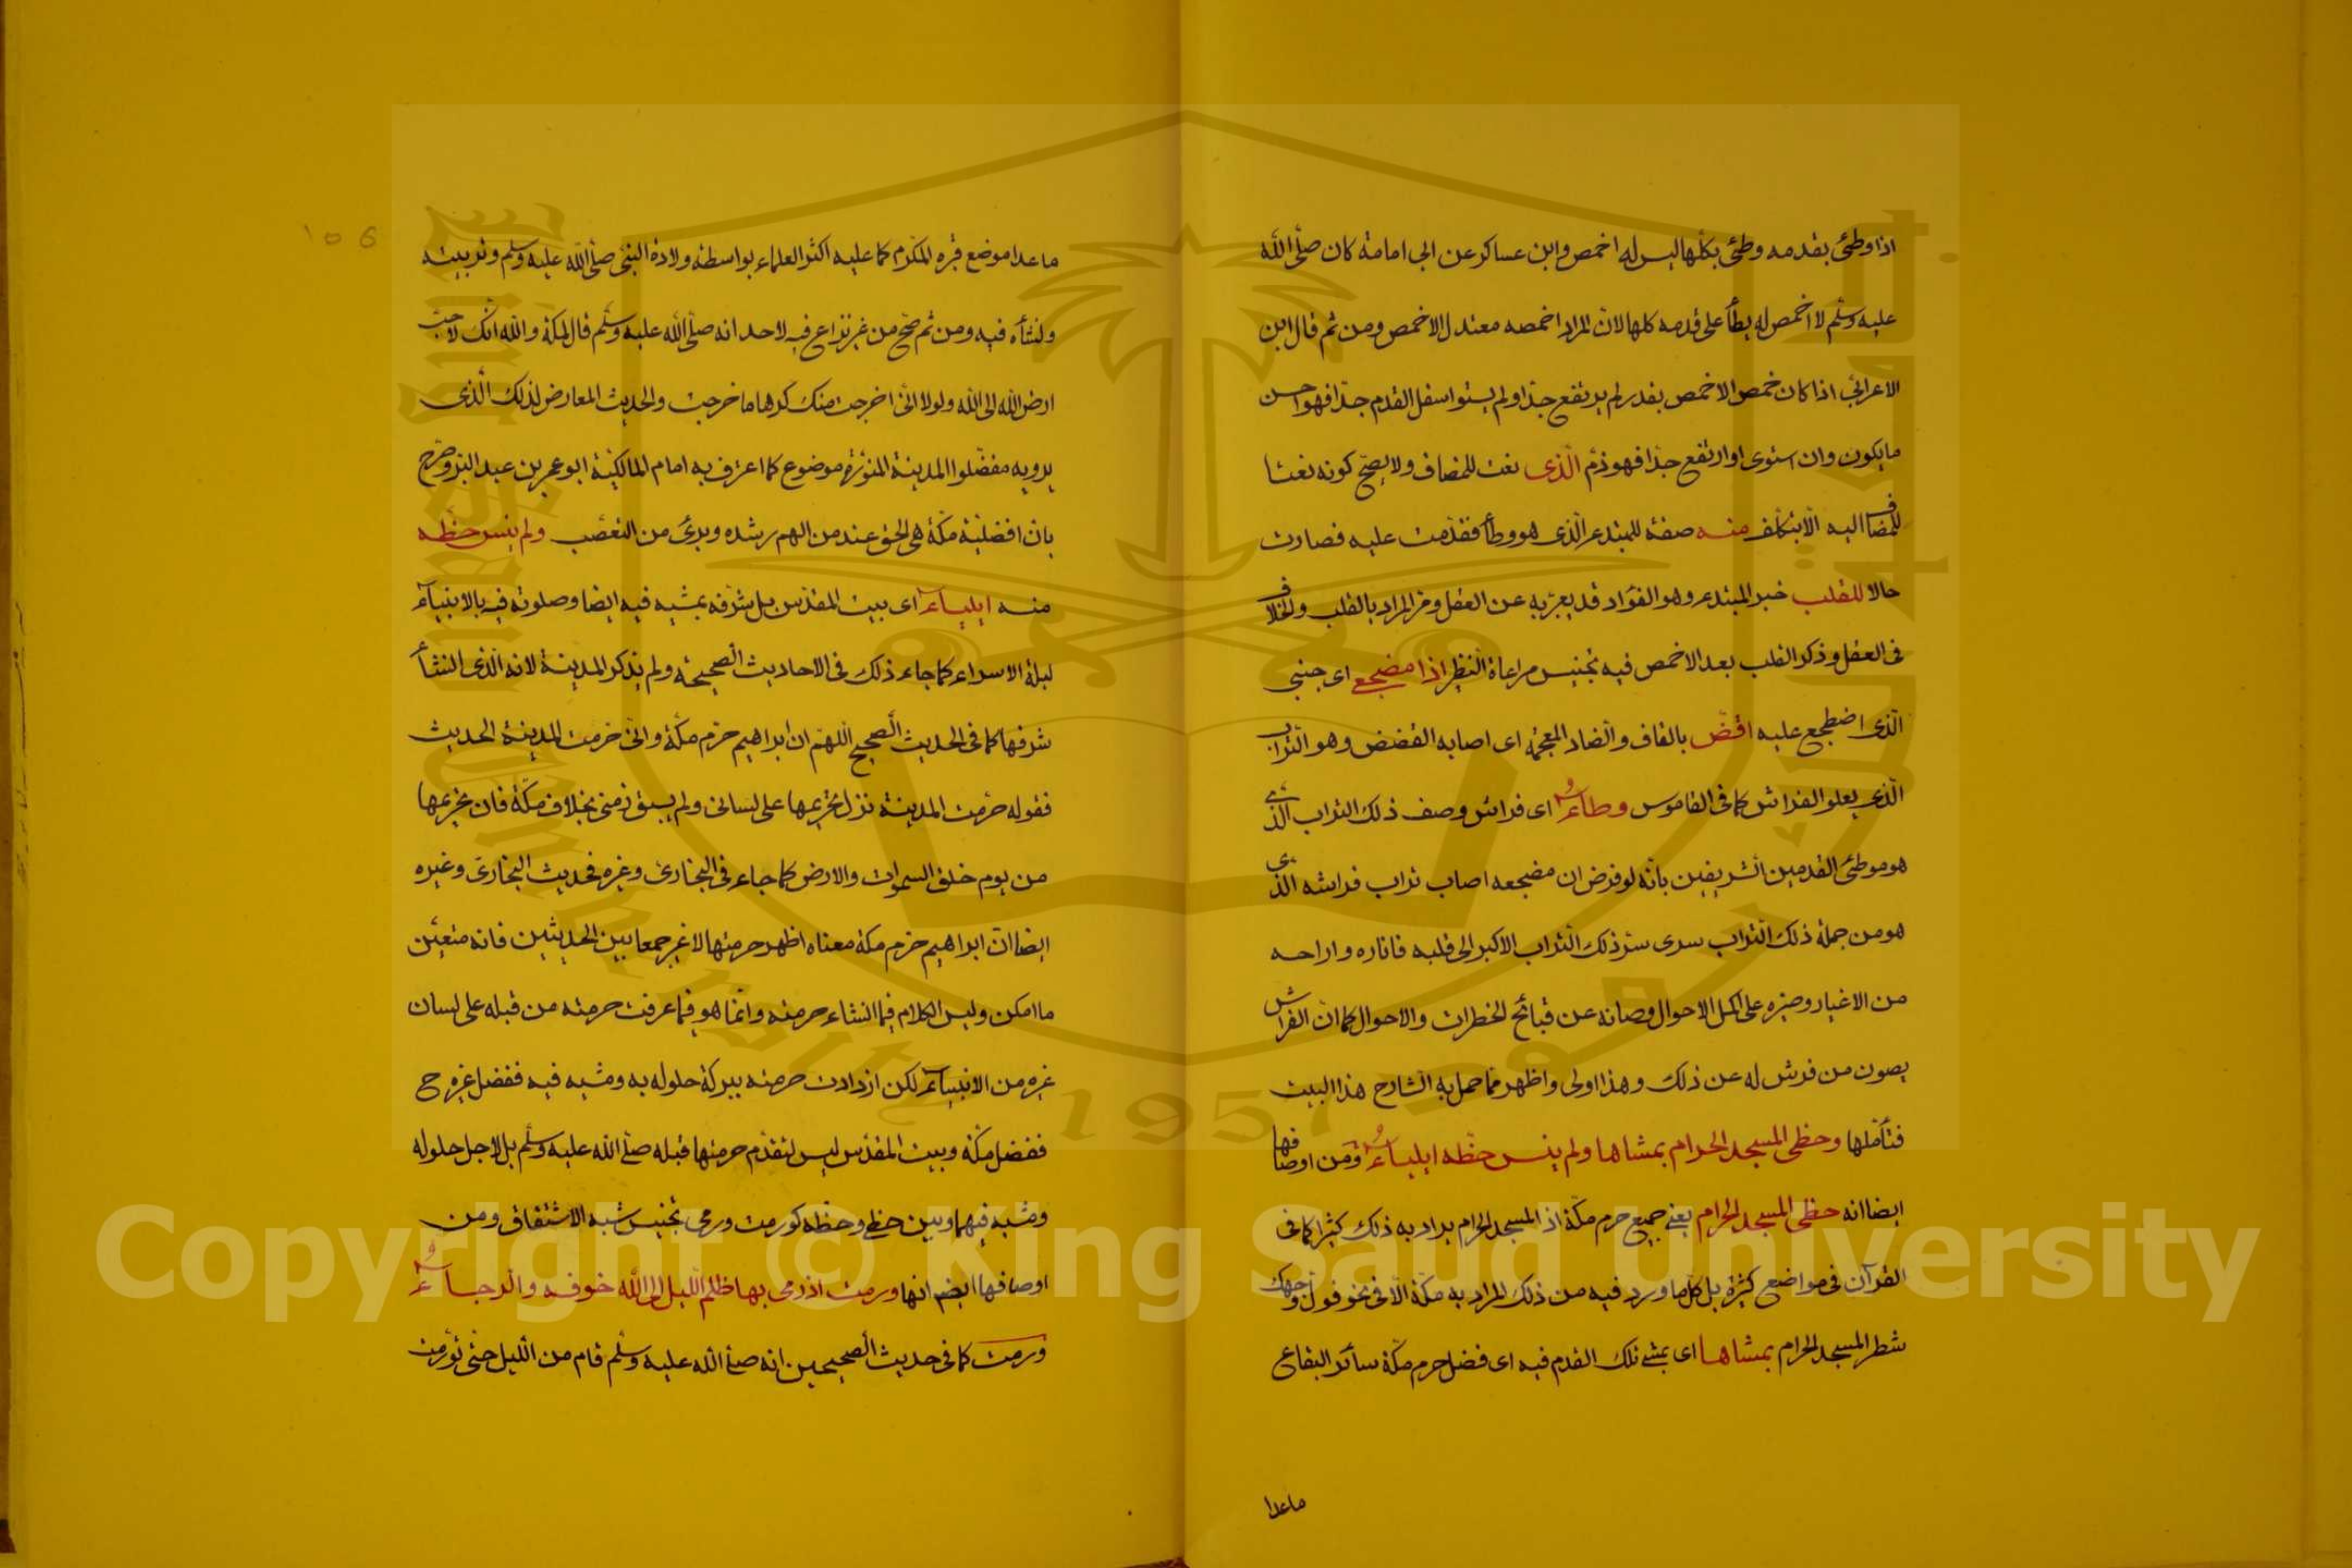 اذا وطئ بقدمه وطئ بكلها ليس له اخمص وابن عساكر عن ابى امامة كان صلى الله
عليه وسلم لا اخمص له يطأ على قدمه كلها لان المراد اخمصه معتدل الاخمص ومن ثم قال ابن
الاعرابى اذا كان خمص الاخمص بقدر لم يرتفع جدا ولم يستو اسفل القدم جدا فهو احسن
ما يكون وان استوى او ارتفع جدا فهو ذم الذى نعت للمضاف ولا يصح كونه نعتا
للمضاف اليه الا بتكلف منه صفة للمبتدء الذى هو وطأ فقدمت عليه فصارت
حالا للقلب خبر المبتدء وهو الفؤاد قد يعبر به عن العقل ومر المراد بالقلب والخلاف
فى العقل وذكر القلب بعد الاخمص فيه تجنيس مراعاة النظير اذا مضجع اى جنبى
الذى اضطجع عليه اقض بالقاف والضاد المعجمة اى اصابه القضض وهو التراب
الذى يعلو الفراش كما فى القاموس وطاء اى فراش وصف ذلك التراب الذى
هو موطئ القدمين الشريفين بانه لو فرض ان مضجعه اصاب تراب فراشه الذى
هو من جملة ذلك التراب سرى سر ذلك التراب الاكبر الى قلبه فاناره واراحه
من الاغيار وصيره على اكمل الاحوال وصانه عن قبائح الخطرات والاحوال كما ان الفراش
يصون من فرش له عن ذلك وهذا اولى واظهر مما حمل به الشارح هذا البيت
فتأملها وحظى المسجد الحرام بممشاها ولم ينس حظه ايلياء ومن اوصافها
ايضا انه حظى المسجد الحرام يعنى جميع حرم مكة اذ المسجد الحرام يراد به ذلك كثيرا كما فى
القرآن فى مواضع كثيرة بل كل ما ورد فيه من ذلك المراد به مكة الا فى نحو فول وجهك
شطر المسجد الحرام بممشاها اى بمشى تلك القدم فيه اى فضل حرم مكة سائر البقاع
ماعدا
ما عدا موضع قبره المكرم كما عليه اكثر العلماء بواسطة ولادة النبى صلى الله عليه وسلم وتربيته
ونشأه فيه ومن ثم صح من غير نزاع فيه لاحد انه صلى الله عليه وسلم قال لمكة والله انك لاحب
ارض الله الى الله ولولا انى اخرجت منك كرها ما خرجت والحديث المعارض لذلك الذى
يرويه مفضلوا المدينة المنورة موضوع كما اعترف به امام المالكية ابو عمر بن عبد البر وصرح
بان افضلية مكة هى الحق عند من الهم رشده وبرئ من التعصب ولم ينس حظه
منه ايلياء اى بيت المقدس بل شرفه بمشيه فيه ايضا وصلوته فيه بالانبياء
ليلة الاسراء كما جاء ذلك فى الاحاديث الصحيحة ولم يذكر المدينة لانه الذى انشأ
شرفها كما فى الحديث الصحيح اللهم ان ابراهيم حرم مكة وانى حرمت المدينة الحديث
فقوله حرمت المدينة نزل تحريمها على لسانى ولم يسبق زمنى بخلاف مكة فان تحريمها
من يوم خلق السموات والارض كما جاء فى البخارى وغيره فحديث البخارى وغيره
ايضا ان ابراهيم حرم مكة معناه اظهر حرمتها لا غير جمعا بين الحديثين فانه متعين
ما امكن وليس الكلام فيما انشاء حرمته وانما هو فيما عرفت حرمته من قبله على لسان
غيره من الانبياء لكن ازدادت حرمته ببركة حلوله به ومشيه فيه ففضل غيره ح
ففضل مكة وبيت المقدس ليس لتقدم حرمتها قبله صلى الله عليه وسلم بل لاجل حلوله
ومشيه فيهما وبين حظى وحظه كورمت ورمى تجنيس شبه الاشتقاق ومن
اوصافها ايضا انها ورمت اذ رمى بها ظلم الليل الى الله خوفه والرجاء
ورمت كما فى حديث الصحيحين انه صلى الله عليه وسلم قام من الليل حتى تورمت